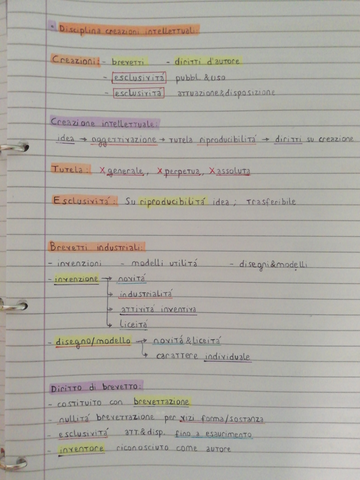 - Disciplina creazioni intellettual.
Creazioni: - brevetti - diritti d'autore
- esclusività pubbl. & uso
- esclusività attuazione & disposizione
Creazione intellettuale:
idea → oggettivazione → tutela riproducibilità → diritti su creazione
Tutela: X generale, X perpetua, X assoluta
Esclusività: Su riproducibilità idea ; trasferibile
Brevetti industriali:
- invenzioni - modelli utilità - disegni & modelli
- invenzione → novità
→ industrialità
→ attività inventiva
→ liceità
- disegno/modello → novità & liceità
→ carattere individuale
Diritto di brevetto:
- costituito con brevettazione
- nullità brevettazione per vizi forma/sostanza
- esclusività att & disp. fino a esaurimento
- inventore riconosciuto come autore